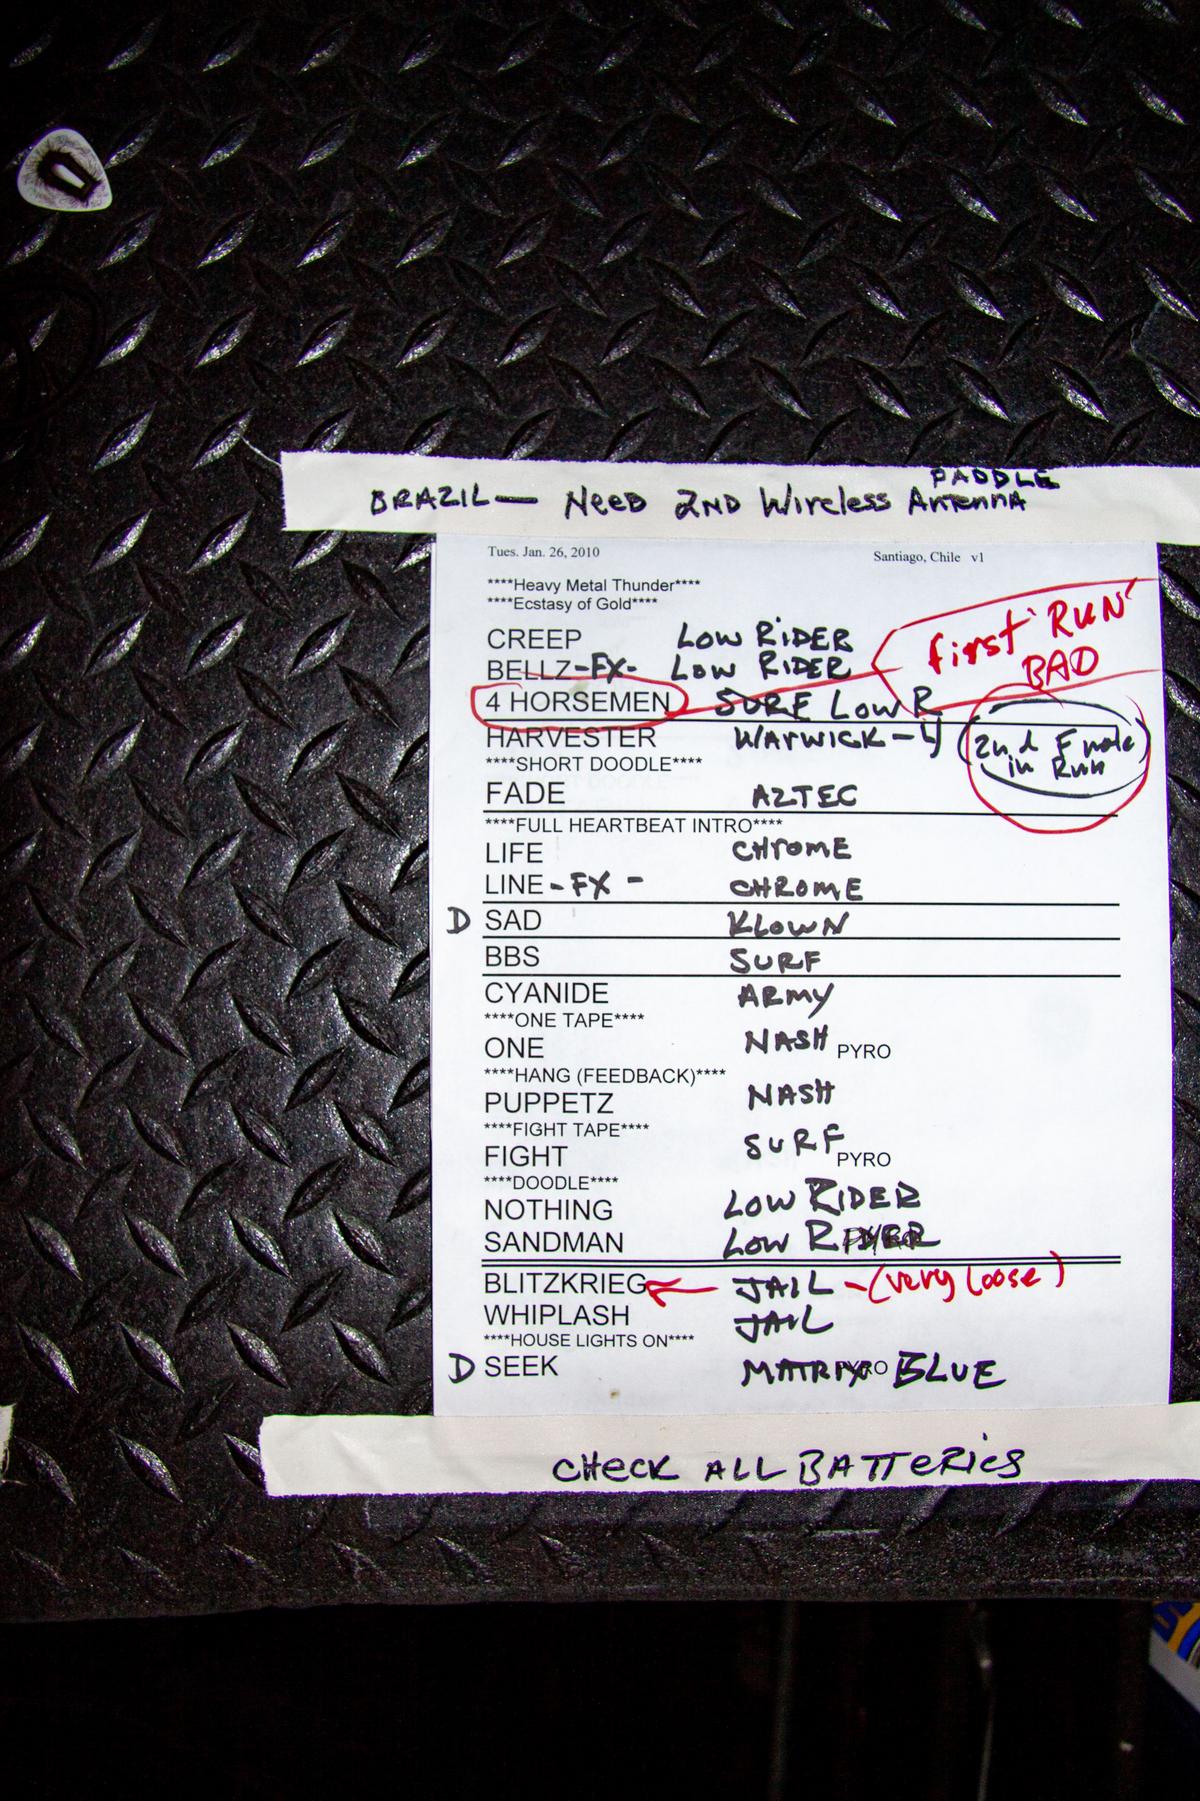 PADDLE
BRAZIL — NEED 2ND Wireless Antenna
Tues. Jan. 26, 2010 Santiago, Chile v1
****Heavy Metal Thunder****
****Ecstasy of Gold****
CREEP LOW RiDER
first 'RUN'
BAD
BELLZ -FX- LOW RIDER
4 HORSEMEN SURF LOW R
HARVESTER WARWICK - 4
(2nd F note
in Run)
****SHORT DOODLE****
FADE AZTEC
****FULL HEARTBEAT INTRO****
LIFE CHROME
LINE - FX - CHROME
D SAD KLOWN
BBS SURF
CYANIDE ARMY
****ONE TAPE****
ONE NASH PYRO
****HANG (FEEDBACK)****
PUPPETZ NASH
****FIGHT TAPE****
FIGHT SURF PYRO
****DOODLE****
NOTHING LOW RIDER
SANDMAN LOW RIDER
BLITZKRIEG JAIL - (very loose)
WHIPLASH JAIL
****HOUSE LIGHTS ON****
D SEEK MATRIX PYRO BLUE
CHECK ALL BATTERIES